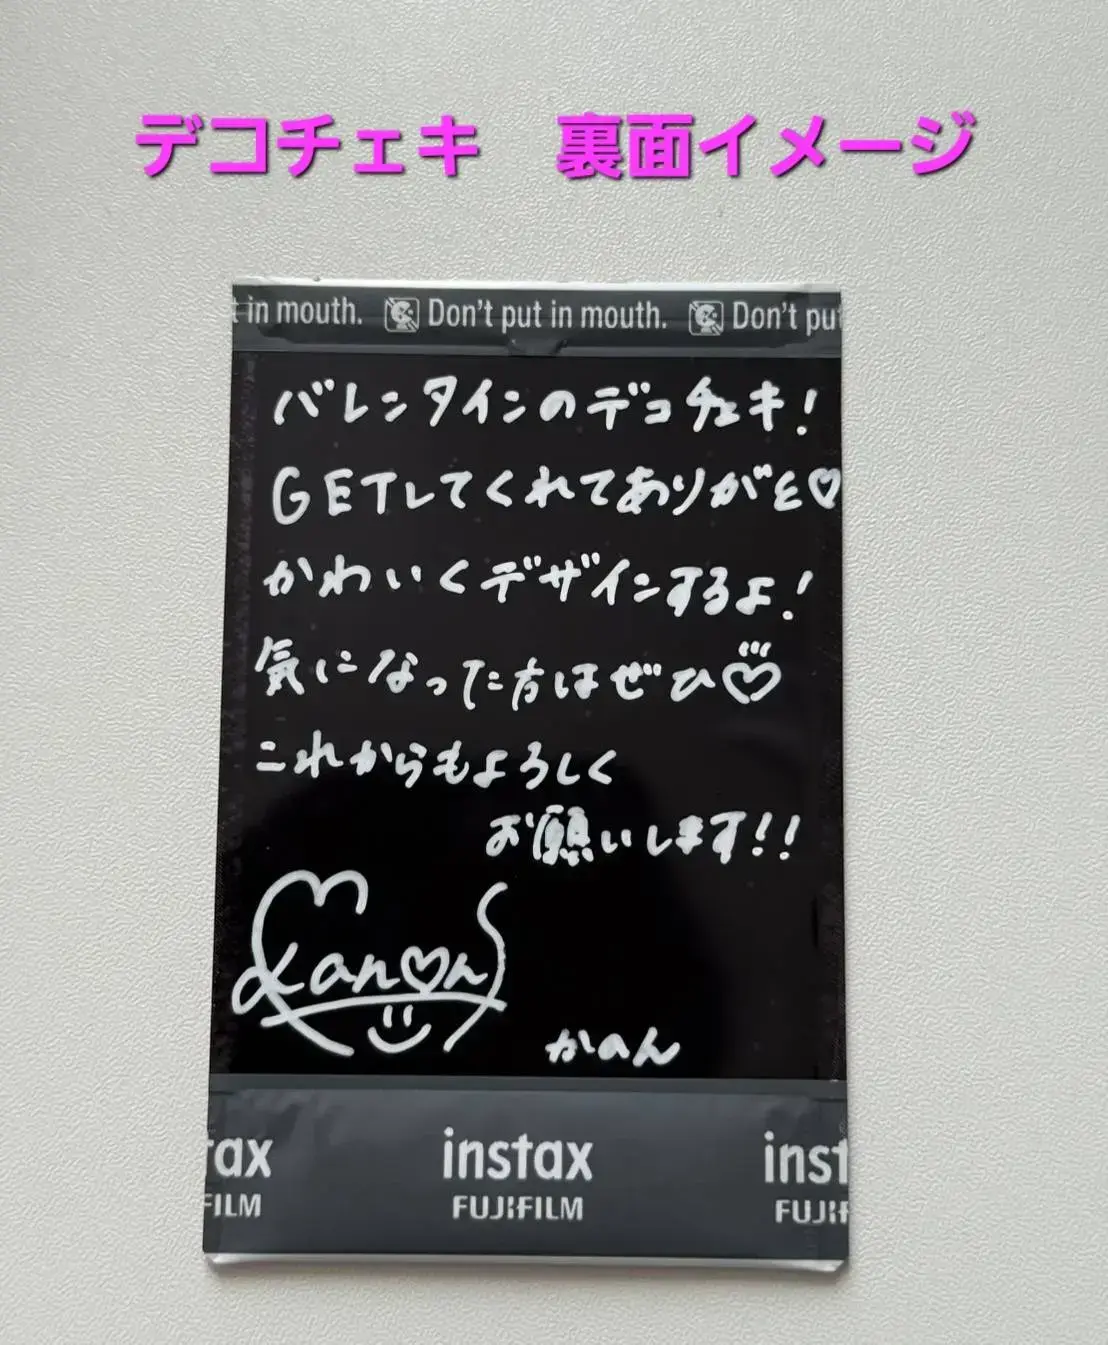 デコチェキ　裏面イメージ
t in mouth. Don't put in mouth. Don't put
バレンタインのデコチェキ!
GETしてくれてありがと♡
かわいくデザインするよ!
気になった方はぜひ♡
これからもよろしく
お願いします!!
Kanon
かのん
tax instax inst
FILM FUJIFILM FUJIF